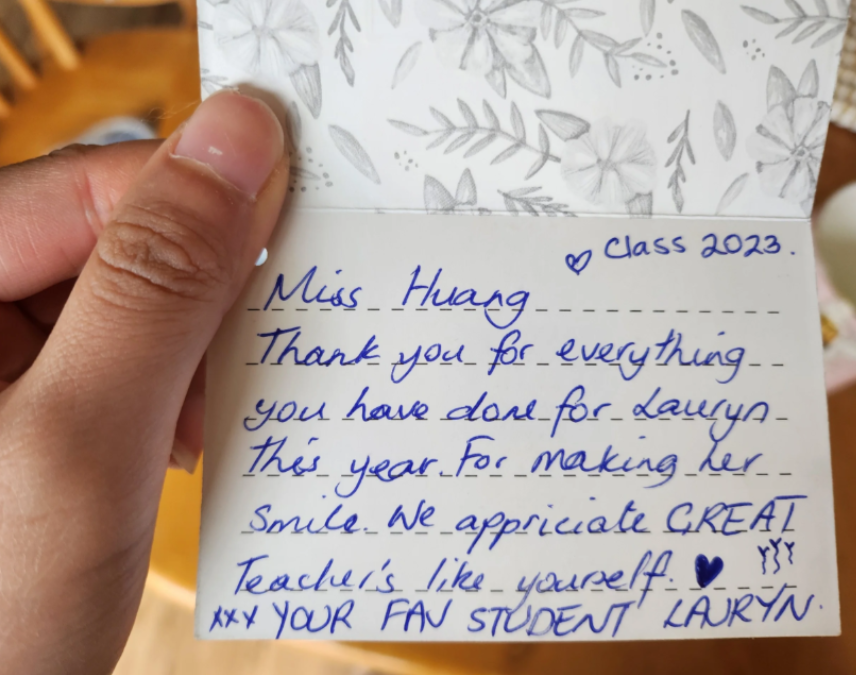 ♡ Class 2023.
Miss Huang
Thank you for everything
you have done for Lauryn
this year. For making her
smile. We appriciate GREAT
Teacher's like yourself. ♥
xxx YOUR FAV STUDENT LAURYN.